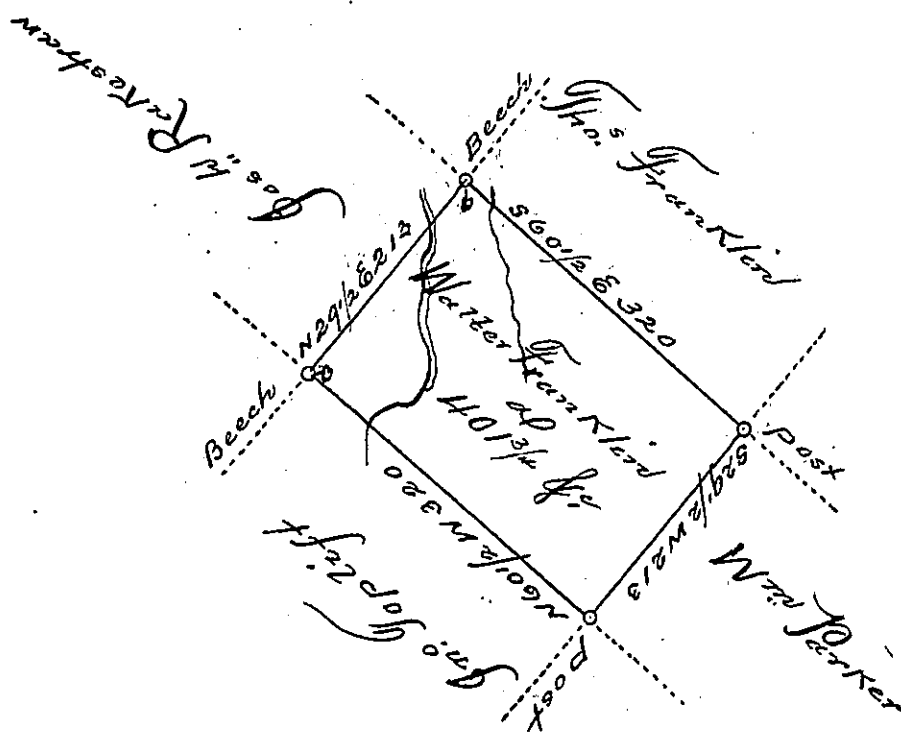 Jos: W Rakestraw
Beech
Thos Franklin
N 29 1/2 E 213
S 60 1/2 E 320
Walter Franklin
401 3/4
Beech
Post
N 60 1/2 W 320
S 29 1/2 W 213
Jno Toplift
Wm Parker
Post